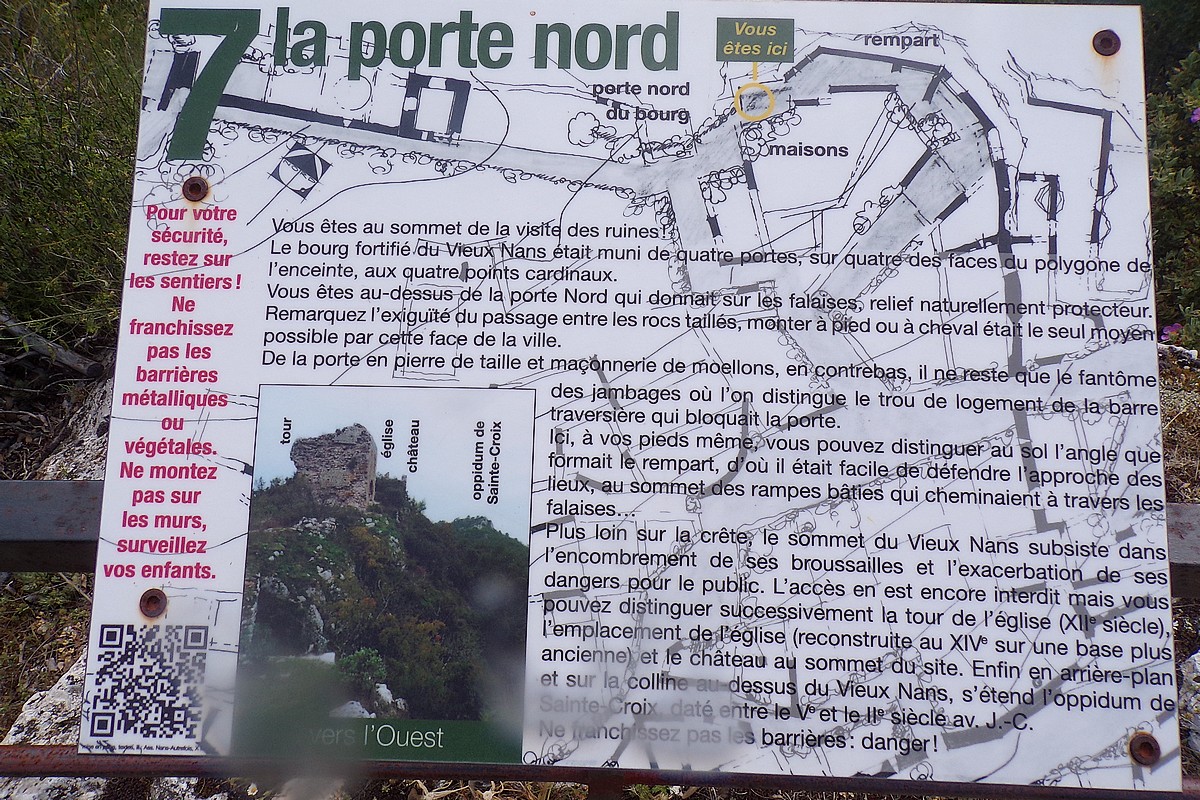 7 la porte nord
Vous
êtes ici
rempart
porte nord
du bourg
maisons
Pour votre
sécurité,
restez sur
les sentiers !
Ne
franchissez
pas les
barrières
métalliques
ou
végétales.
Ne montez
pas sur
les murs,
surveillez
vos enfants.
Vous êtes au sommet de la visite des ruines !
Le bourg fortifié du Vieux Nans était muni de quatre portes, sur quatre des faces du polygone de
l'enceinte, aux quatre points cardinaux.
Vous êtes au-dessus de la porte Nord qui donnait sur les falaises, relief naturellement protecteur.
Remarquez l'exiguïté du passage entre les rocs taillés, monter à pied ou à cheval était le seul moyen
possible par cette face de la ville.
De la porte en pierre de taille et maçonnerie de moellons, en contrebas, il ne reste que le fantôme
des jambages où l'on distingue le trou de logement de la barre
traversière qui bloquait la porte.
Ici, à vos pieds même, vous pouvez distinguer au sol l'angle que
formait le rempart, d'où il était facile de défendre l'approche des
lieux, au sommet des rampes bâties qui cheminaient à travers les
falaises...
Plus loin sur la crête, le sommet du Vieux Nans subsiste dans
l'encombrement de ses broussailles et l'exacerbation de ses
dangers pour le public. L'accès en est encore interdit mais vous
pouvez distinguer successivement la tour de l'église (XIIe siècle),
l'emplacement de l'église (reconstruite au XIVe sur une base plus
ancienne) et le château au sommet du site. Enfin en arrière-plan
et sur la colline au-dessus du Vieux Nans, s'étend l'oppidum de
Sainte-Croix, daté entre le Ve et le IIe siècle av. J.-C.
Ne franchissez pas les barrières : danger !
tour
église
château
oppidum de
Sainte-Croix
vers l'Ouest